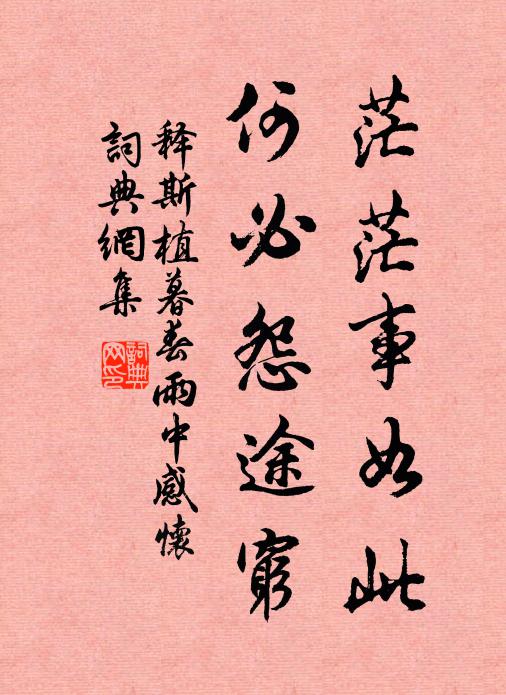 茫茫事如此
何必怨途窮
释斯植暮春雨中感懷
詞典網集
詞典网印